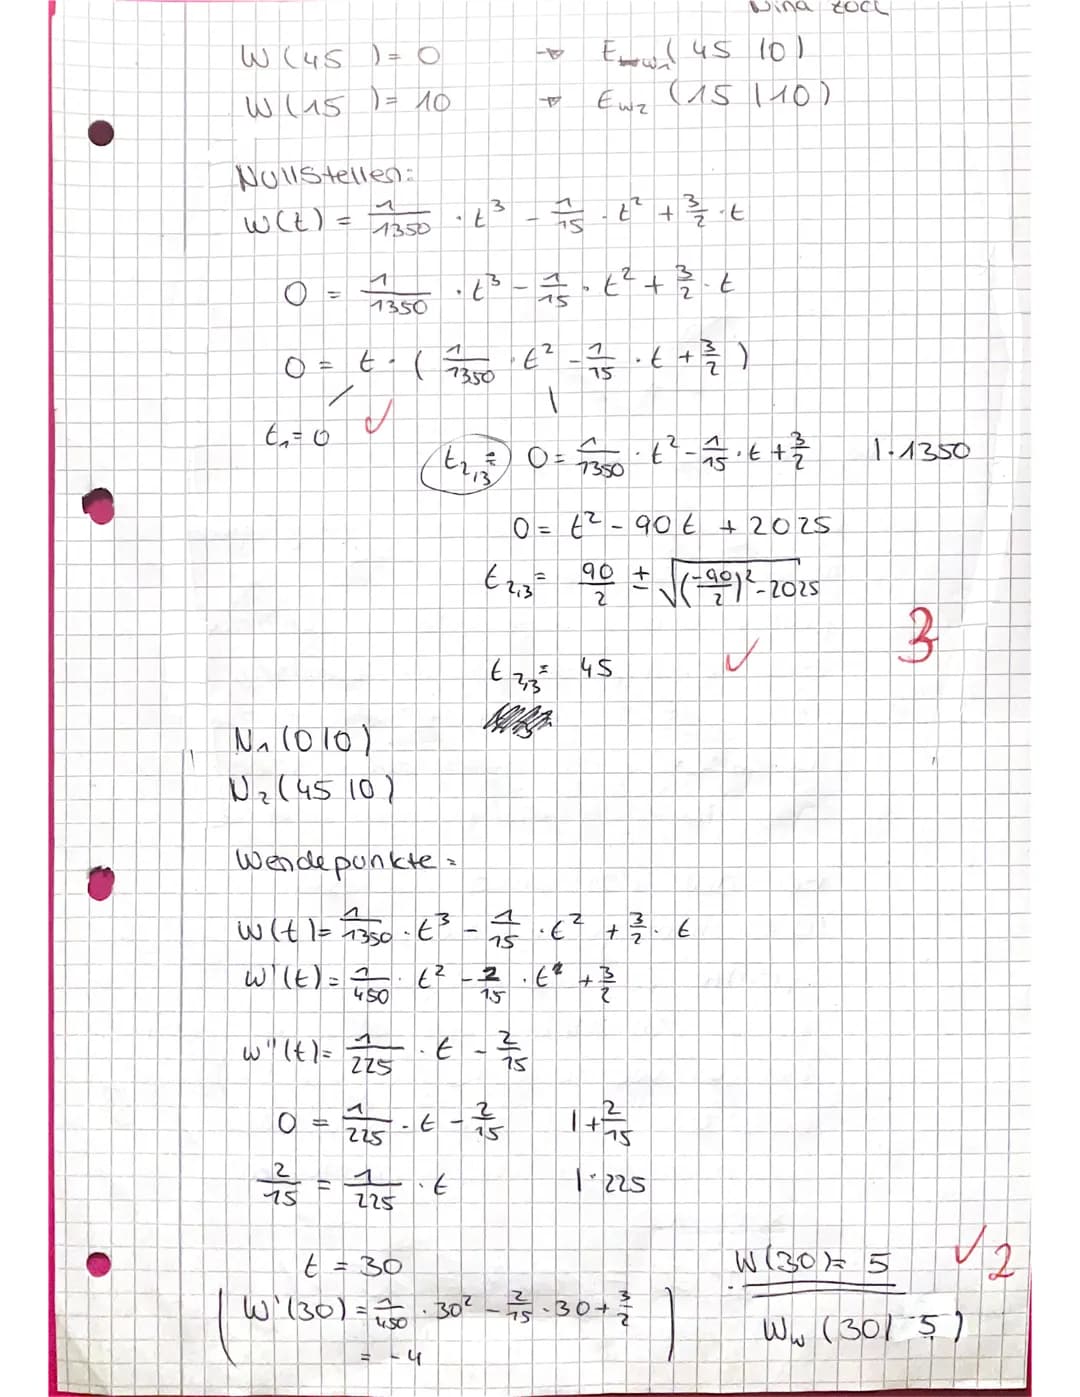 Nina
W(45) = 0 → Ew1(45|0)
W(15) = 10 → Ew2(15|10)
Nullstellen:
W(t) = 1/1350 · t³ - 1/15 · t² + 3/2 · t
0 = 1/1350 · t³ - 1/15 · t² + 3/2 · t
0 = t · ( 1/1350 · t² - 1/15 · t + 3/2 )
t₁ = 0 ✓
t₂,₃ = 0 = 1/1350 · t² - 1/15 · t + 3/2 | · 1350
0 = t² - 90t + 2025
t₂,₃ = 90/2 ± √((-90/2)² - 2025)
3
t₂,₃ = 45 ✓
N₁(0|0)
N₂(45|0)
Wendepunkte =
W(t) = 1/1350 · t³ - 1/15 · t² + 3/2 · t
W'(t) = 1/450 · t² - 2/15 · t + 3/2
W''(t) = 1/225 · t - 2/15
0 = 1/225 · t - 2/15 | + 2/15
2/15 = 1/225 · t | · 225
t = 30 W(30) = 5 ✓ 2
( W'(30) = 1/450 · 30² - 2/15 · 30 + 3/2 ) Ww(30|5)
= -4